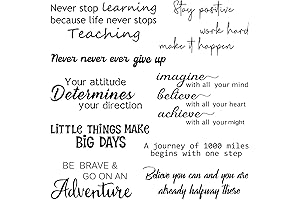 Never stop learning
because life never stops
Teaching
Never never ever give up
Your attitude
Determines
your direction
LITTLE THINGS MAKE
BIG DAYS
BE BRAVE &
GO ON AN
Adventure
Stay positive
work hard
make it happen
imagine
with all your mind
believe
with all your heart
achieve
with all your might
A journey of 1000 miles
begins with one step
Believe you can and you are
already halfway there